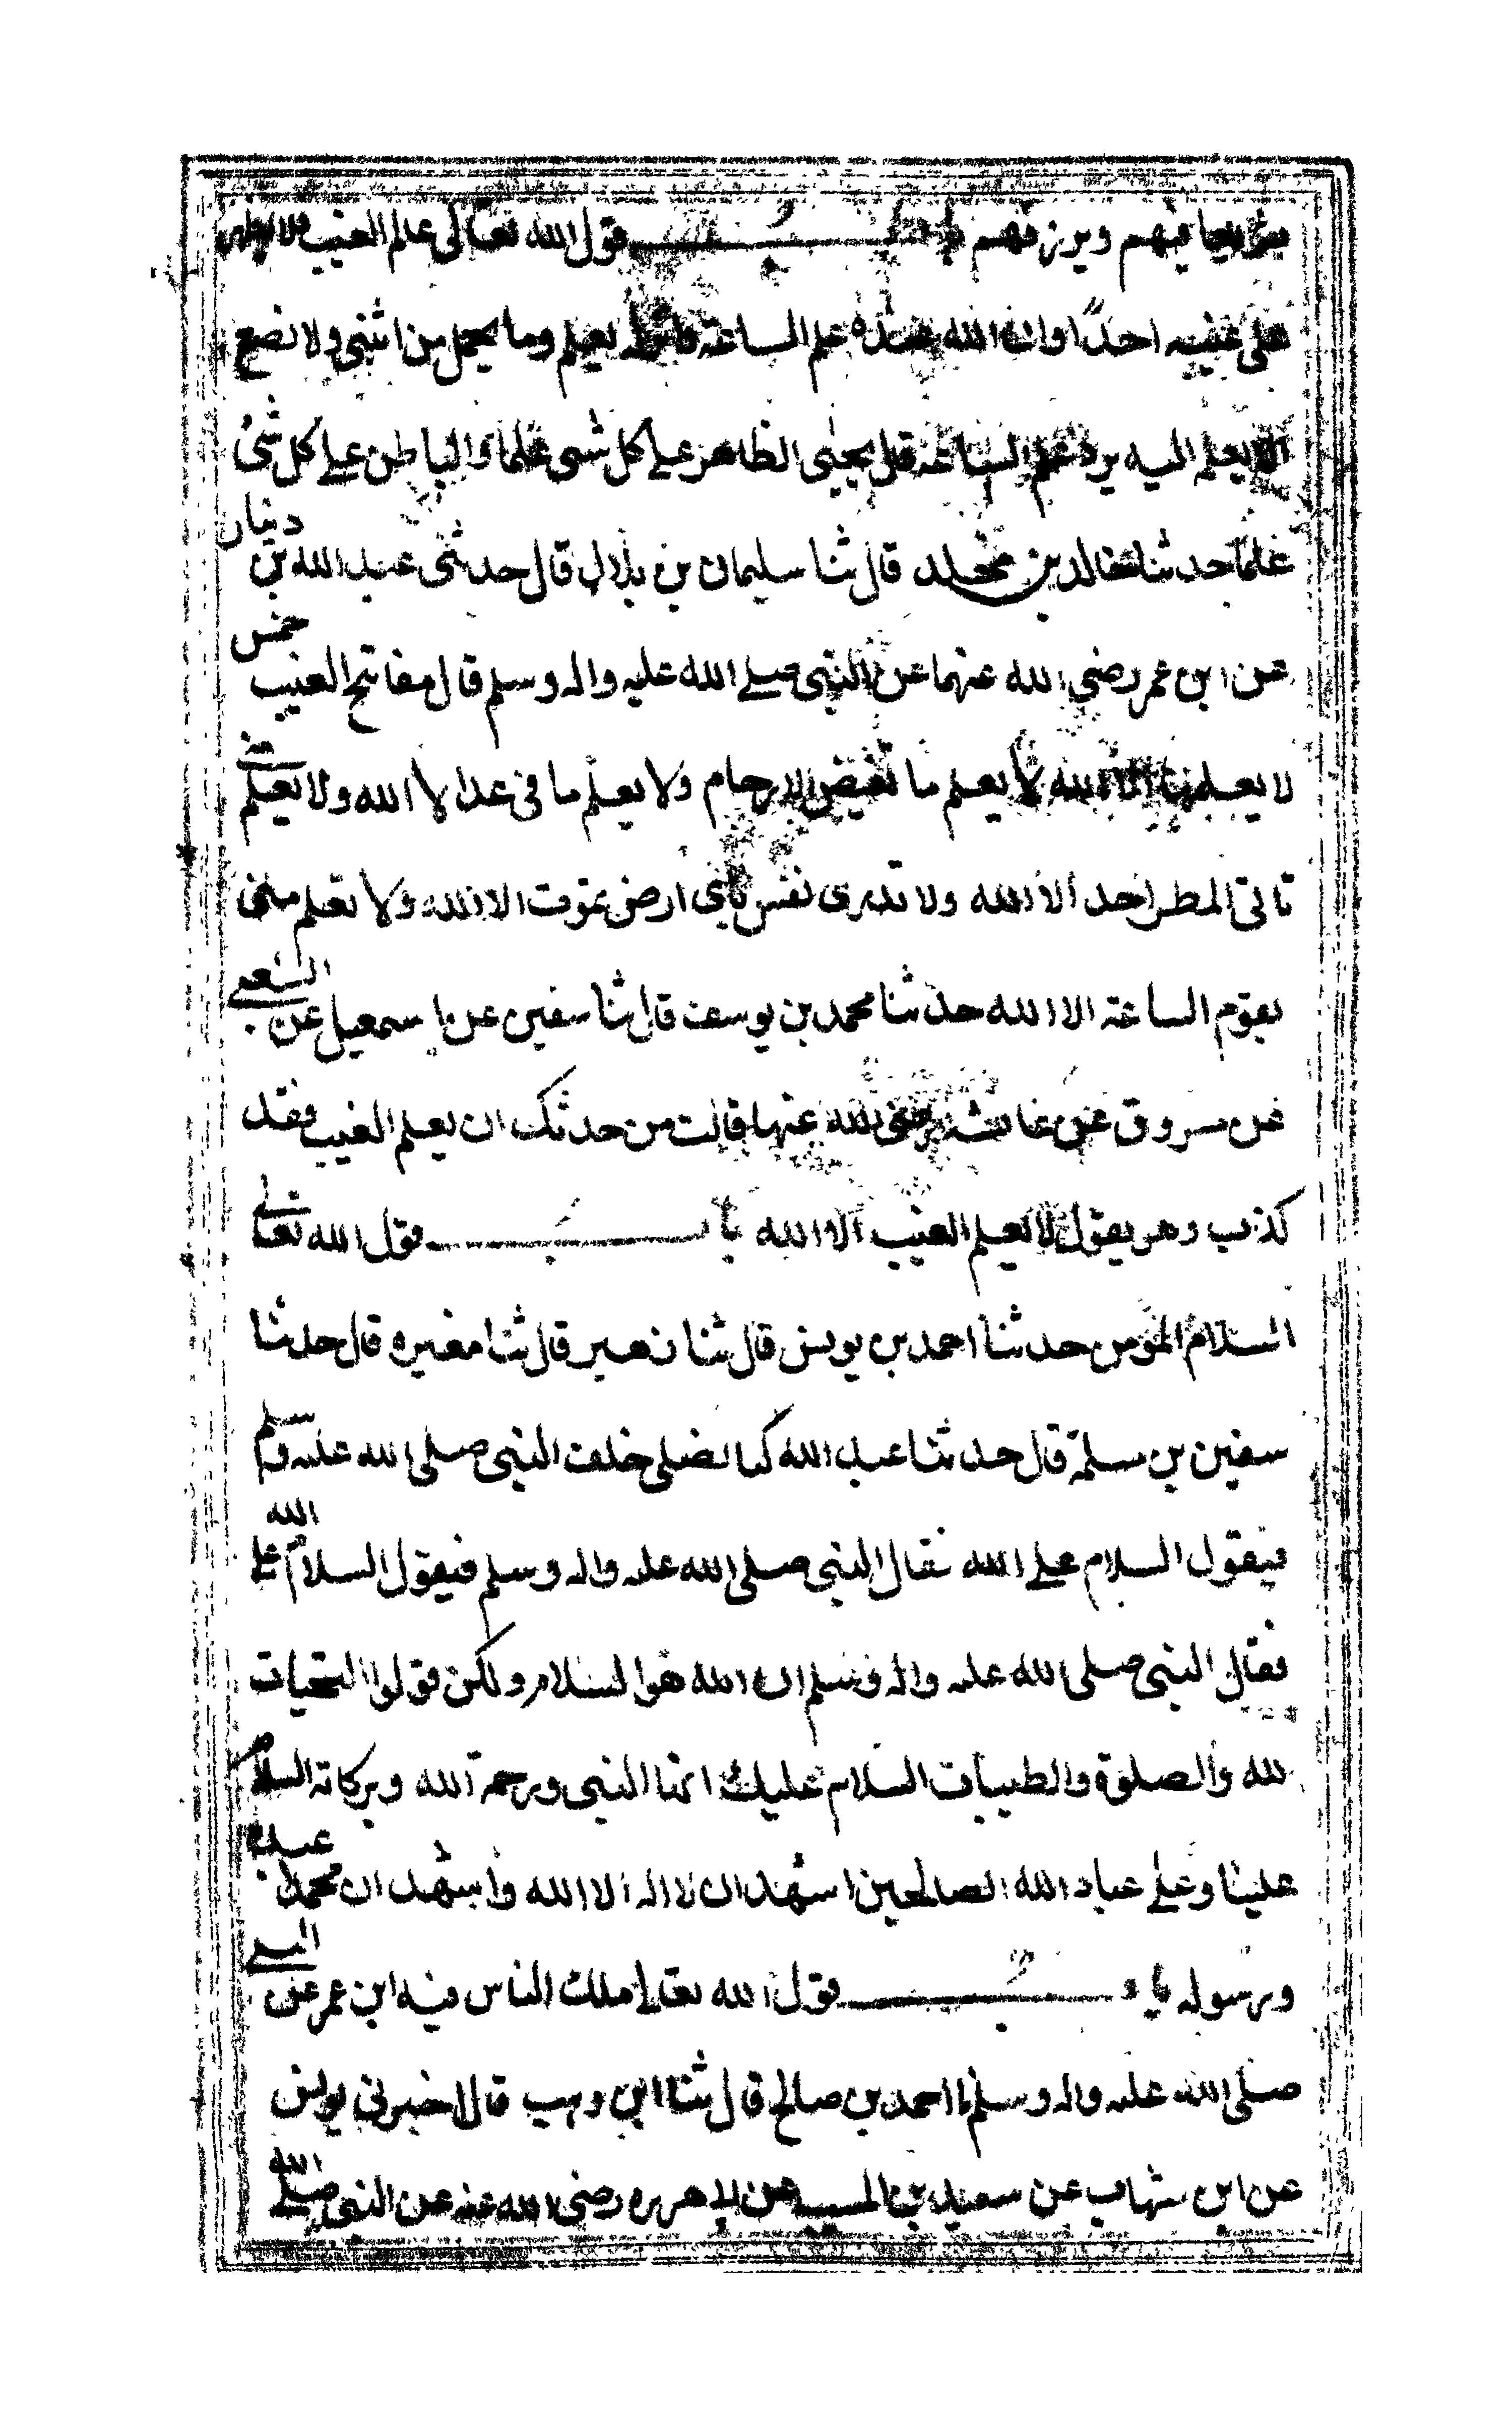 ثم يعافيهم ويرزقهم باب قول الله تعالى عالم الغيب فلا يظهر
على غيبه احدًا وان الله عنده علم الساعة وانزله بعلمه وما تحمل من انثى ولا تضع
الا بعلمه اليه يرد علم الساعة قال يحيى الظاهر على كل شى علما والباطن على كل شئ
علما حدثنا خالد بن مخلد قال ثنا سليمان بن بلال قال حدثنى عبد الله بن دينار
عن ابن عمر رضي الله عنهما عن النبي صلى الله عليه واله وسلم قال مفاتح الغيب خمس
لا يعلمها الا الله لا يعلم ما تغيض الارحام ولا يعلم ما فى غد الا الله ولا يعلم متى
تاتى المطر احد الا الله ولا تدرى نفس باى ارض تموت الا الله ولا تعلم متى
يقوم الساعة الا الله حدثنا محمد بن يوسف قال ثنا سفين عن اسمعيل عن الشعبى
عن مسروق عن عائشة رضى الله عنها قالت من حدثك ان يعلم الغيب فقد
كذب وهو يقول لا يعلم الغيب الا الله باب قول الله تعالى
السلام المؤمن حدثنا احمد بن يونس قال ثنا زهير قال ثنا مغيره قال حدثنا
سفين بن سلمة قال حدثنا عبد الله كنا نصلى خلف النبى صلى الله عليه وسلم
فيقول السلام على الله فقال النبى صلى الله عليه واله وسلم فيقول السلام على الله
فقال النبى صلى الله عليه واله وسلم ان الله هو السلام ولكن قولوا التحيات
لله والصلوة والطيبات السلام عليك ايها النبى ورحمة الله وبركاته السلام
علينا وعلى عباد الله الصالحين اشهد ان لا اله الا الله واشهد ان محمدا عبده
ورسوله باب قول الله تعالى ملك الناس فيه ابن عمر عن النبى
صلى الله عليه واله وسلم نا احمد بن صالح قال ثنا ابن وهب قال اخبرنى يونس
عن ابن شهاب عن سعيد بن المسيب عن ابى هريره رضى الله عنه عن النبى صلى الله